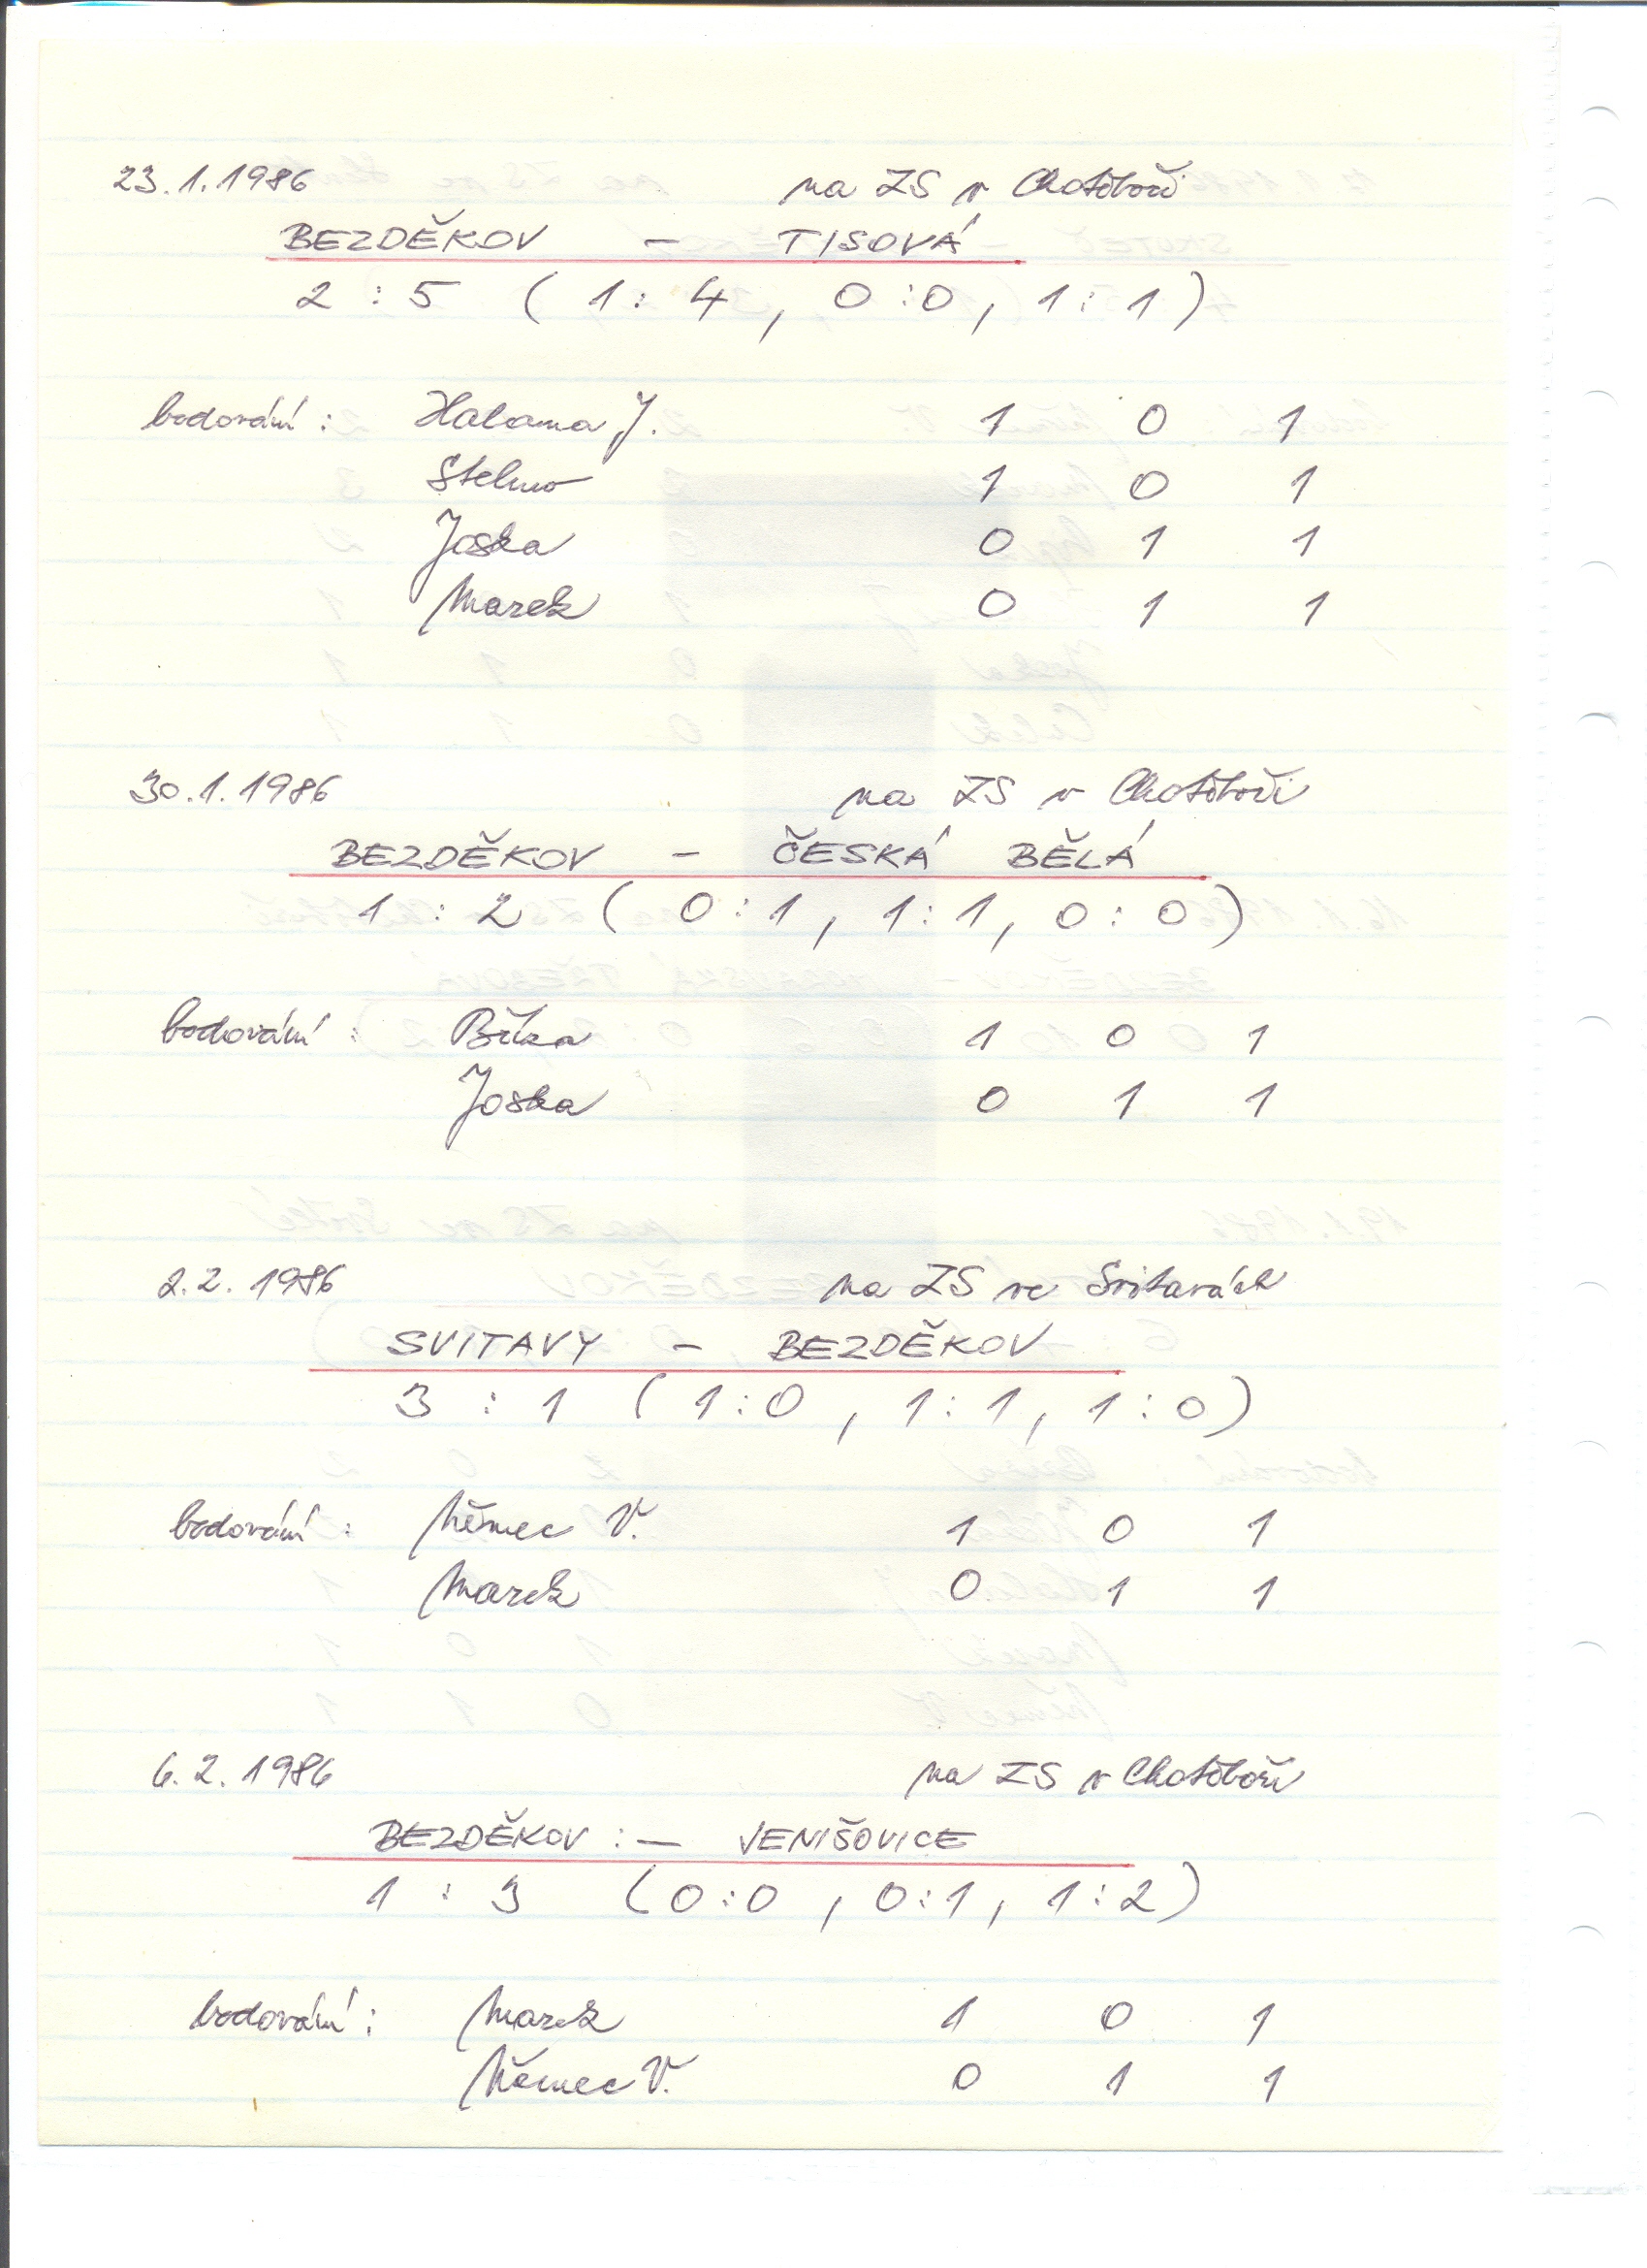 23.1.1986 na ZS v Chotěboři
BEZDĚKOV - TISOVÁ
2 : 5 ( 1 : 4 , 0 : 0 , 1 : 1 )
bodování : Halama J. 1 0 1
Stehno 1 0 1
Joska 0 1 1
Marek 0 1 1
30.1.1986 na ZS v Chotěboři
BEZDĚKOV - ČESKÁ BĚLÁ
1 : 2 ( 0 : 1 , 1 : 1 , 0 : 0 )
bodování : 1 0 1
Joska 0 1 1
2.2.1986 na ZS ve Svitavách
SVITAVY - BEZDĚKOV
3 : 1 ( 1 : 0 , 1 : 1 , 1 : 0 )
bodování : Němec V. 1 0 1
Marek 0 1 1
6.2.1986 na ZS v Chotěboři
BEZDĚKOV : - VENIŠOVICE
1 : 3 ( 0 : 0 , 0 : 1 , 1 : 2 )
bodování : Marek 1 0 1
Němec V. 0 1 1